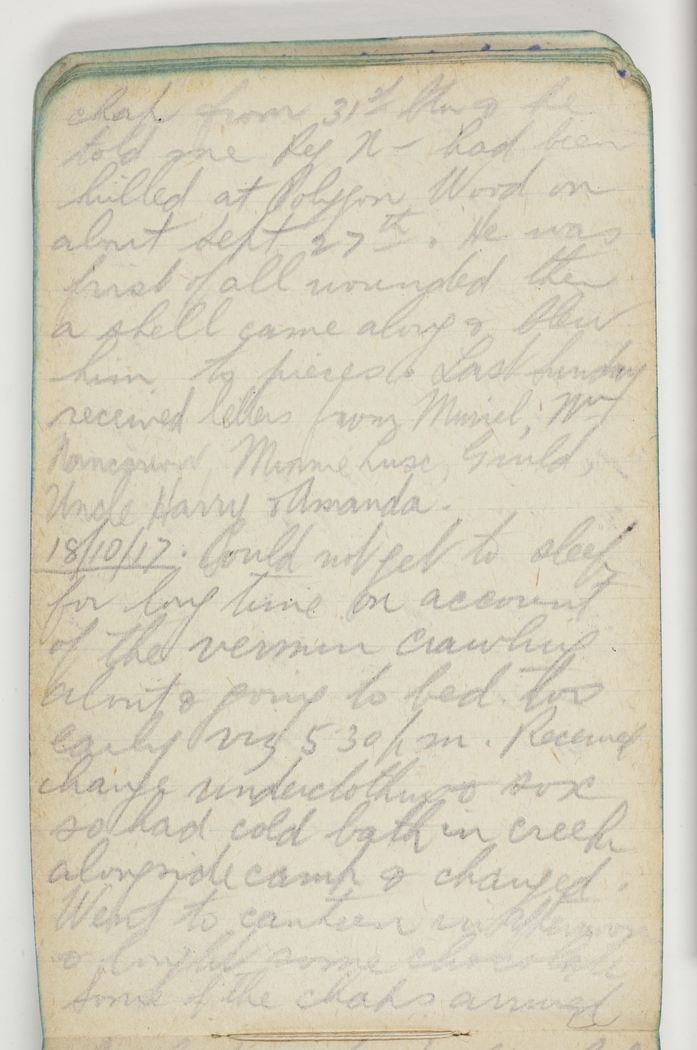 chap from 31st Btn & he
told me Reg N- had been
killed at Polygon Wood on
about Sept 27th. He was
first of all wounded then
a shell came along & blew
him to pieces. Last Sunday
received letters from Muriel,
Minnehusc, Guild,
Uncle Harry & Amanda.
18/10/17. Could not get to sleep
for long time on account
of the vermin crawling
about & going to bed too
early viz 530 pm. Received
change underclothing & sox
so had cold bath in creek
alongside camp & changed.
Went to canteen in afternoon
& bought some chocolate
Some of the chaps arrived